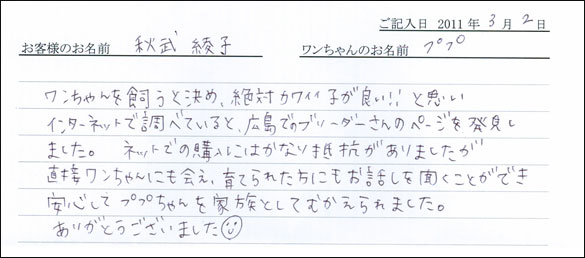 ご記入日 2011年 3月 2日
お客様のお名前 秋武 綾子 ワンちゃんのお名前 ププ
ワンちゃんを飼うと決め、絶対カワイイ子が良い!! と思い
インターネットで調べていると、広島でのブリーダーさんのページを発見し
ました。 ネットでの購入にはかなり抵抗がありましたが
直接ワンちゃんにも会え、育てられた方にもお話しを聞くことができ
安心して ププちゃんを家族としてむかえられました。
ありがとうございました